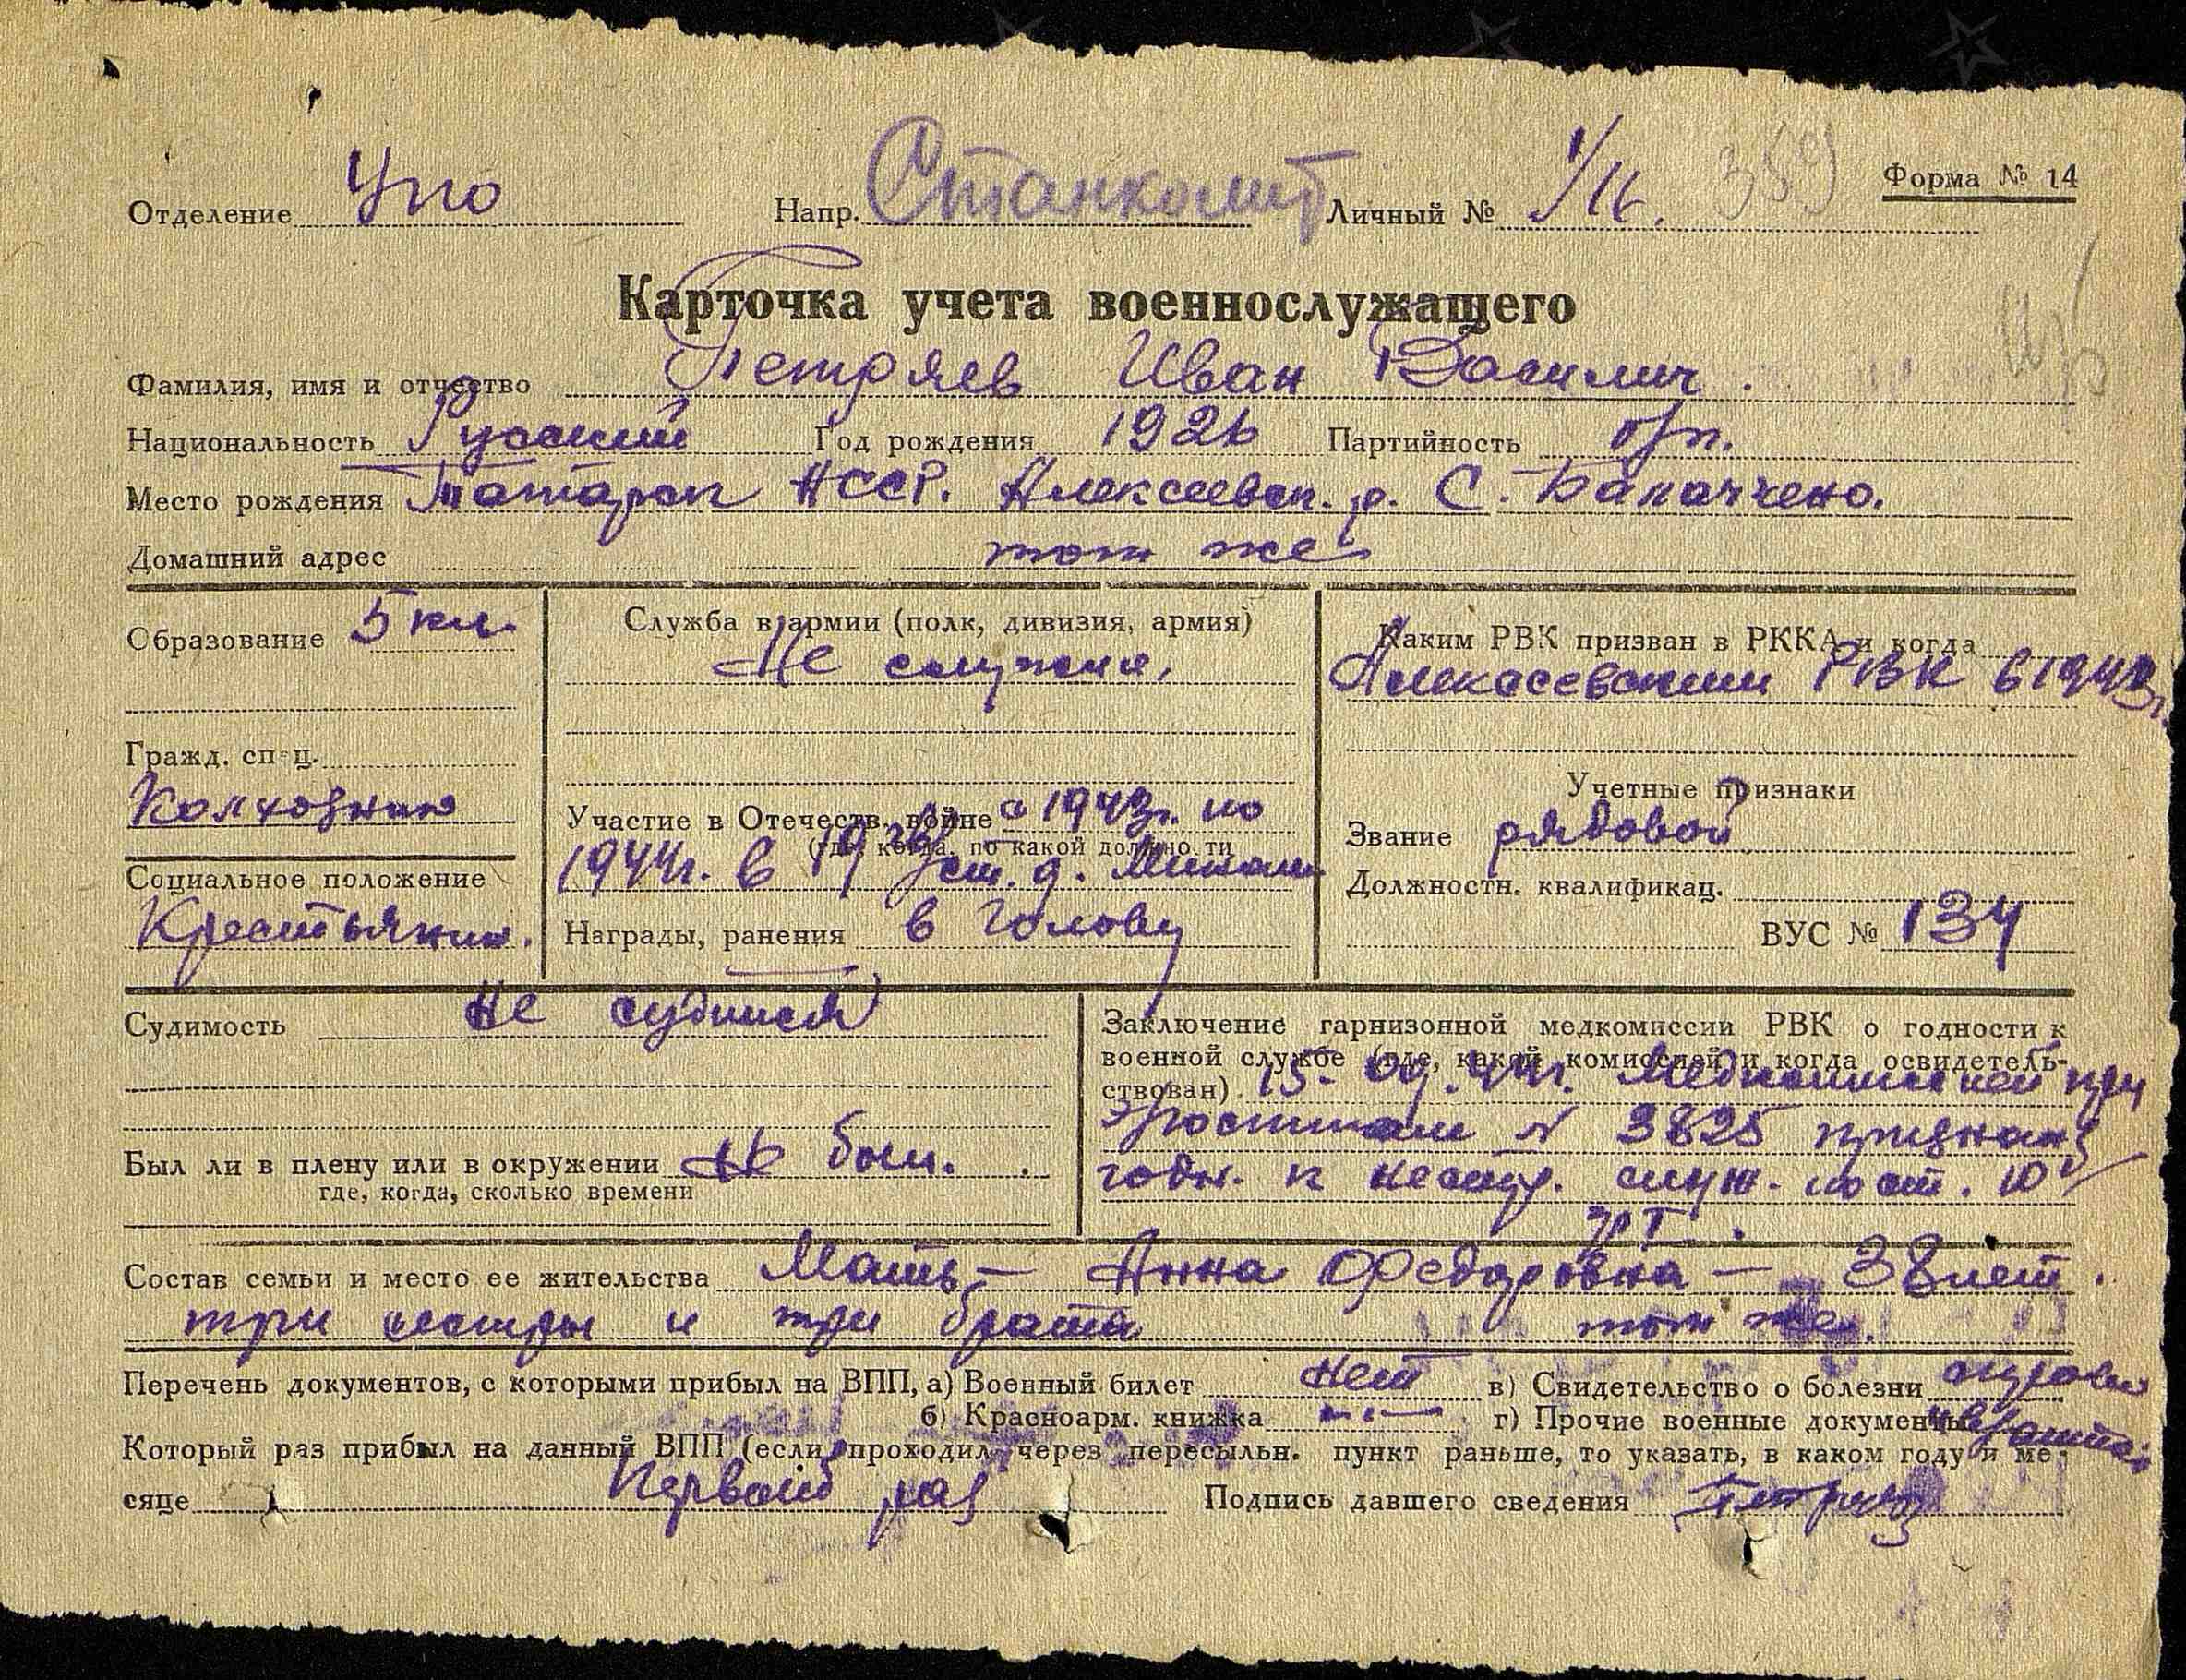 Форма № 14
Отделение Упо Напр. Станколит Личный № 1/16. 359
Карточка учета военнослужащего
Фамилия, имя и отчество Петряев Иван Василич.
Национальность Русский Год рождения 1926 Партийность б/п.
Место рождения Татарск АССР. Алексеевск. р. С.
Домашний адрес тот же
Образование 5 кл.
Гражд. спец.
Колхозник
Социальное положение
Крестьянин.
Служба в армии (полк, дивизия, армия)
Не служил.
Участие в Отечеств. войне с 1943г. по
(где, когда, по какой должности
1944г. в 19
Награды, ранения в голову
Каким РВК призван в РККА и когда
Алексеевским РВК в 1943г.
Учетные признаки
Звание рядовой
Должностн. квалификац.
ВУС № 134
Судимость не судился
Был ли в плену или в окружении не был.
где, когда, сколько времени
Заключение гарнизонной медкомиссии РВК о годности к
военной службе (где, какой комиссией и когда освидетель-
ствован) 15. 09. 44г. Медкомиссией при
госпитале № 3825 признан
годн. к нестр. служ. по ст.
Состав семьи и место ее жительства Мать — Анна Федоровна — 38 лет.
три сестры и три брата тот же.
Перечень документов, с которыми прибыл на ВПП, а) Военный билет нет в) Свидетельство о болезни
б) Красноарм. книжка -"- г) Прочие военные документы
Который раз прибыл на данный ВПП (если проходил через пересыльн. пункт раньше, то указать, в каком году и ме-
сяце Первый раз Подпись давшего сведения Петряев